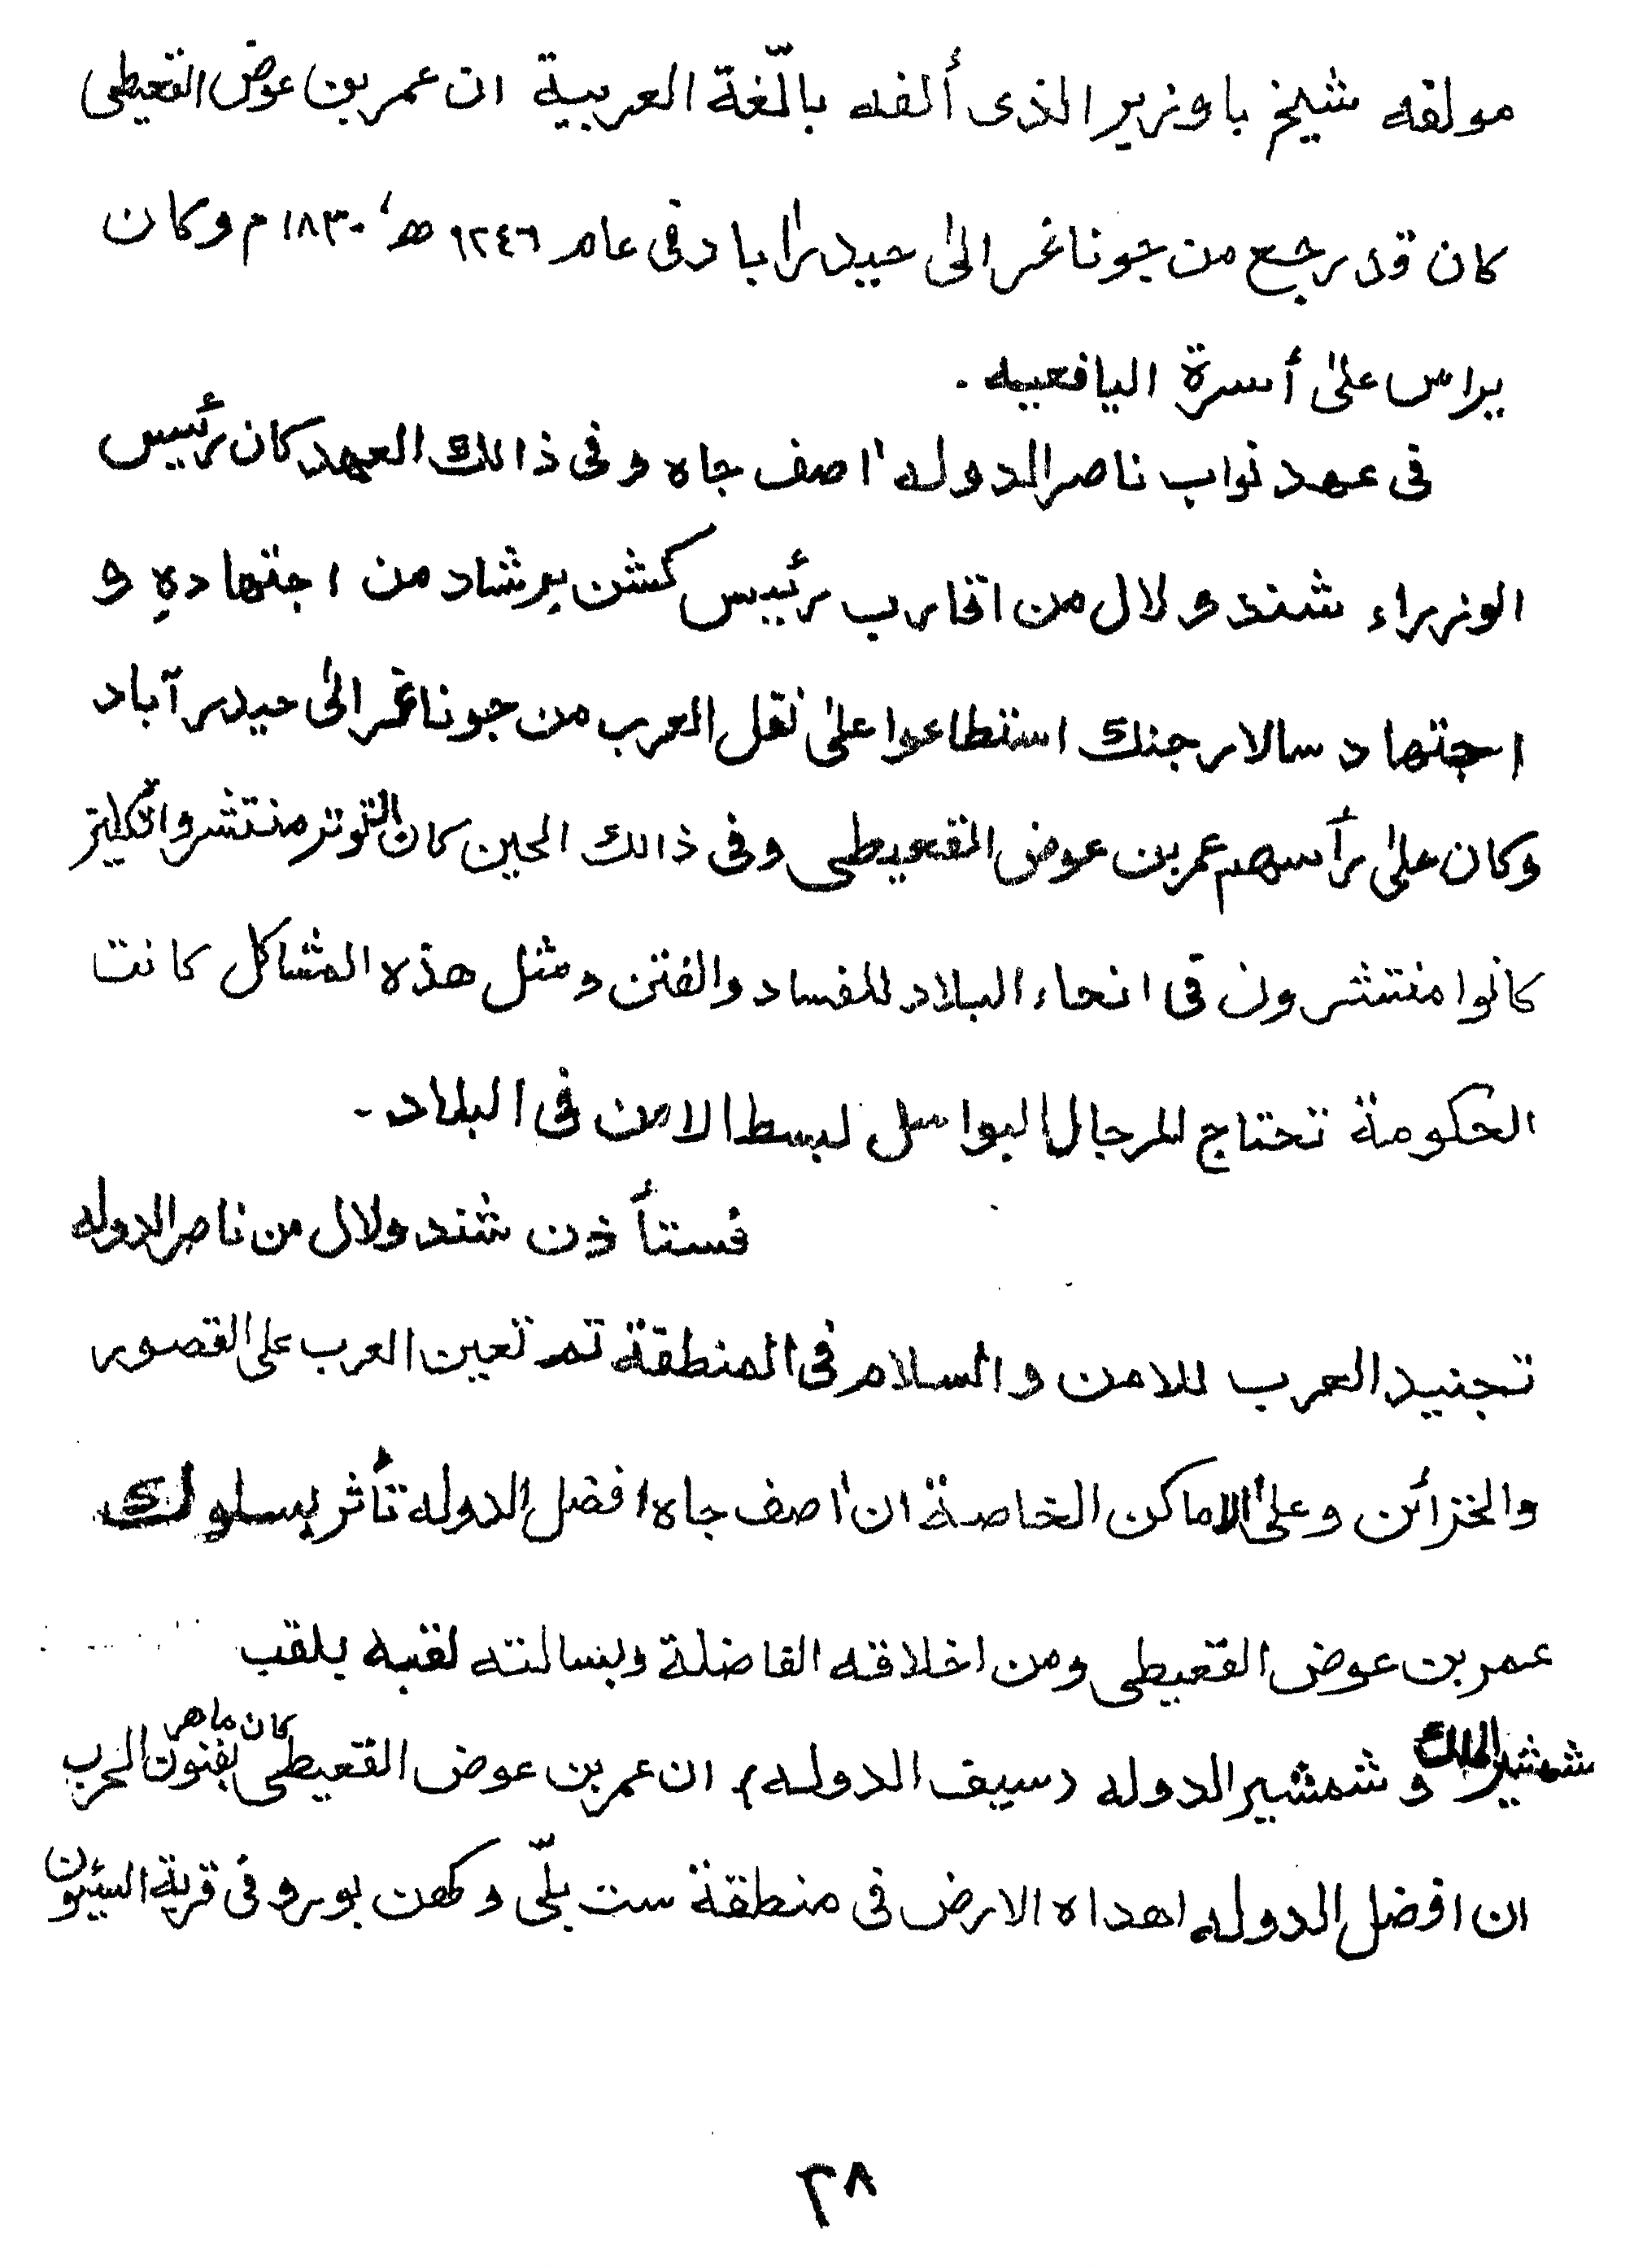 مولفه شيخ باوزير الذى ألفه باللّغة العربية ان عمر بن عوض القعيطى
كان قد رجع من جوناغر الىٰ حيدرٰاباد فى عام ١٢٤٦ ھ، ١٨٣٠ م وكان
يراس علىٰ أسرة اليافعيه .
فى عهد نواب ناصر الدوله اٰصف جاه و فى ذالك العهد كان رئيس
الوزراء شندولال من اقارب رئيس كشن پرشاد من اجتهادهِ و
اجتهاد سالار جنك استطاعوا علىٰ نقل العرب من جوناغر الىٰ حيدر آباد
وكان علىٰ رأسهم عمر بن عوض القعيطى وفى ذالك الحين كان التوتر منتشر وانكليز
كانوا منتشرون فى انحاء البلاد للفساد والفتن و مثل هذه المشاكل كانت
الحكومة تحتاج للرجال البواسل لبسط الامن فى البلاد -
فستأذن شندولال من ناصر الدوله
تجنيد العرب للامن والسلام فى المنطقة تم تعين العرب على القصور
والخزائن وعلىٰ الاماكن الخاصة ان اٰصف جاه افضل الدوله تأثر بسلوك
عمر بن عوض القعيطى ومن اخلاقه الفاضلة وبسالته لقبه بلقب
شمشير الملك و شمشير الدوله (سيف الدوله) ان عمر بن عوض القعيطى كان ماهر بفنون الحرب
ان افضل الدوله اهداه الارض فى منطقة ست بلّى و كهن بورو فى قرية
٢٨